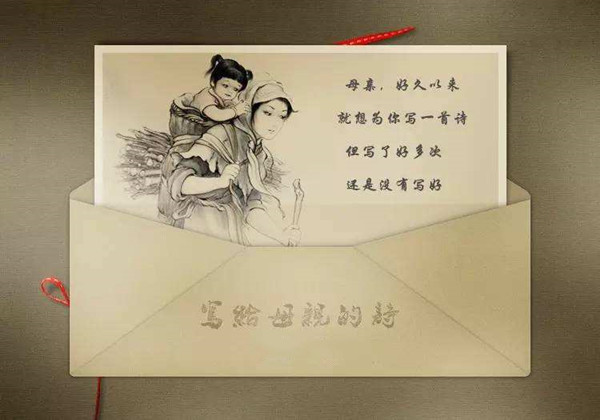 母亲，好久以来
就想为你写一首诗
但写了好多次
还是没有写好
写给母親的詩